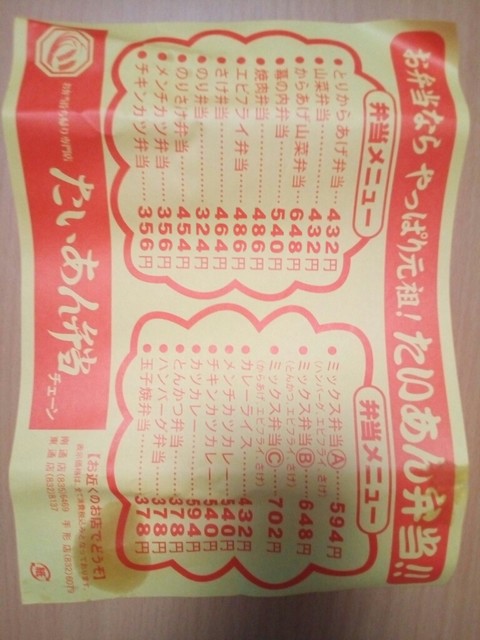 お弁当なら やっぱり元祖! たいあん弁当!!
弁当メニュー
●とりからあげ弁当……432円
●山菜弁当……432円
●からあげ山菜弁当……648円
●幕の内弁当……540円
●焼肉弁当……486円
●エビフライ弁当……486円
●さけ弁当……464円
●のり弁当……324円
●のりさけ弁当……454円
●メンチカツ弁当……356円
●チキンカツ弁当……356円
弁当メニュー
●ミックス弁当Ⓐ……594円
(ハンバーグ、エビフライ、さけ)
●ミックス弁当Ⓑ……648円
(とんかつ、エビフライ、さけ)
●ミックス弁当Ⓒ……702円
(からあげ、エビフライ、さけ)
●カレーライス……432円
●メンチカツカレー……540円
●チキンカツカレー……540円
●カツカレー……594円
●とんかつ弁当……378円
●ハンバーグ弁当……378円
●玉子焼弁当……378円
たいあん弁当
チェーン
【お近くのお店でどうぞ】